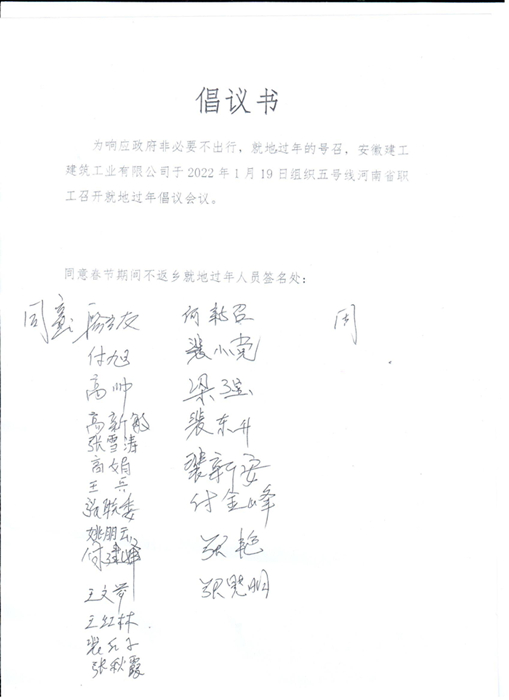 倡议书
为响应政府非必要不出行，就地过年的号召，安徽建工
建筑工业有限公司于2022年1月19日组织五号线河南省职
工召开就地过年倡议会议。
同意春节期间不返乡就地过年人员签名处：
同意
付旭
高帅
高新敏
张雪涛
高娟
王兵
张联委
姚朋云
付建峰
王文举
王红林
张秋霞
何乾召
裴小党
梁强
裴东升
裴新安
付金峰
张艳
张党明
周